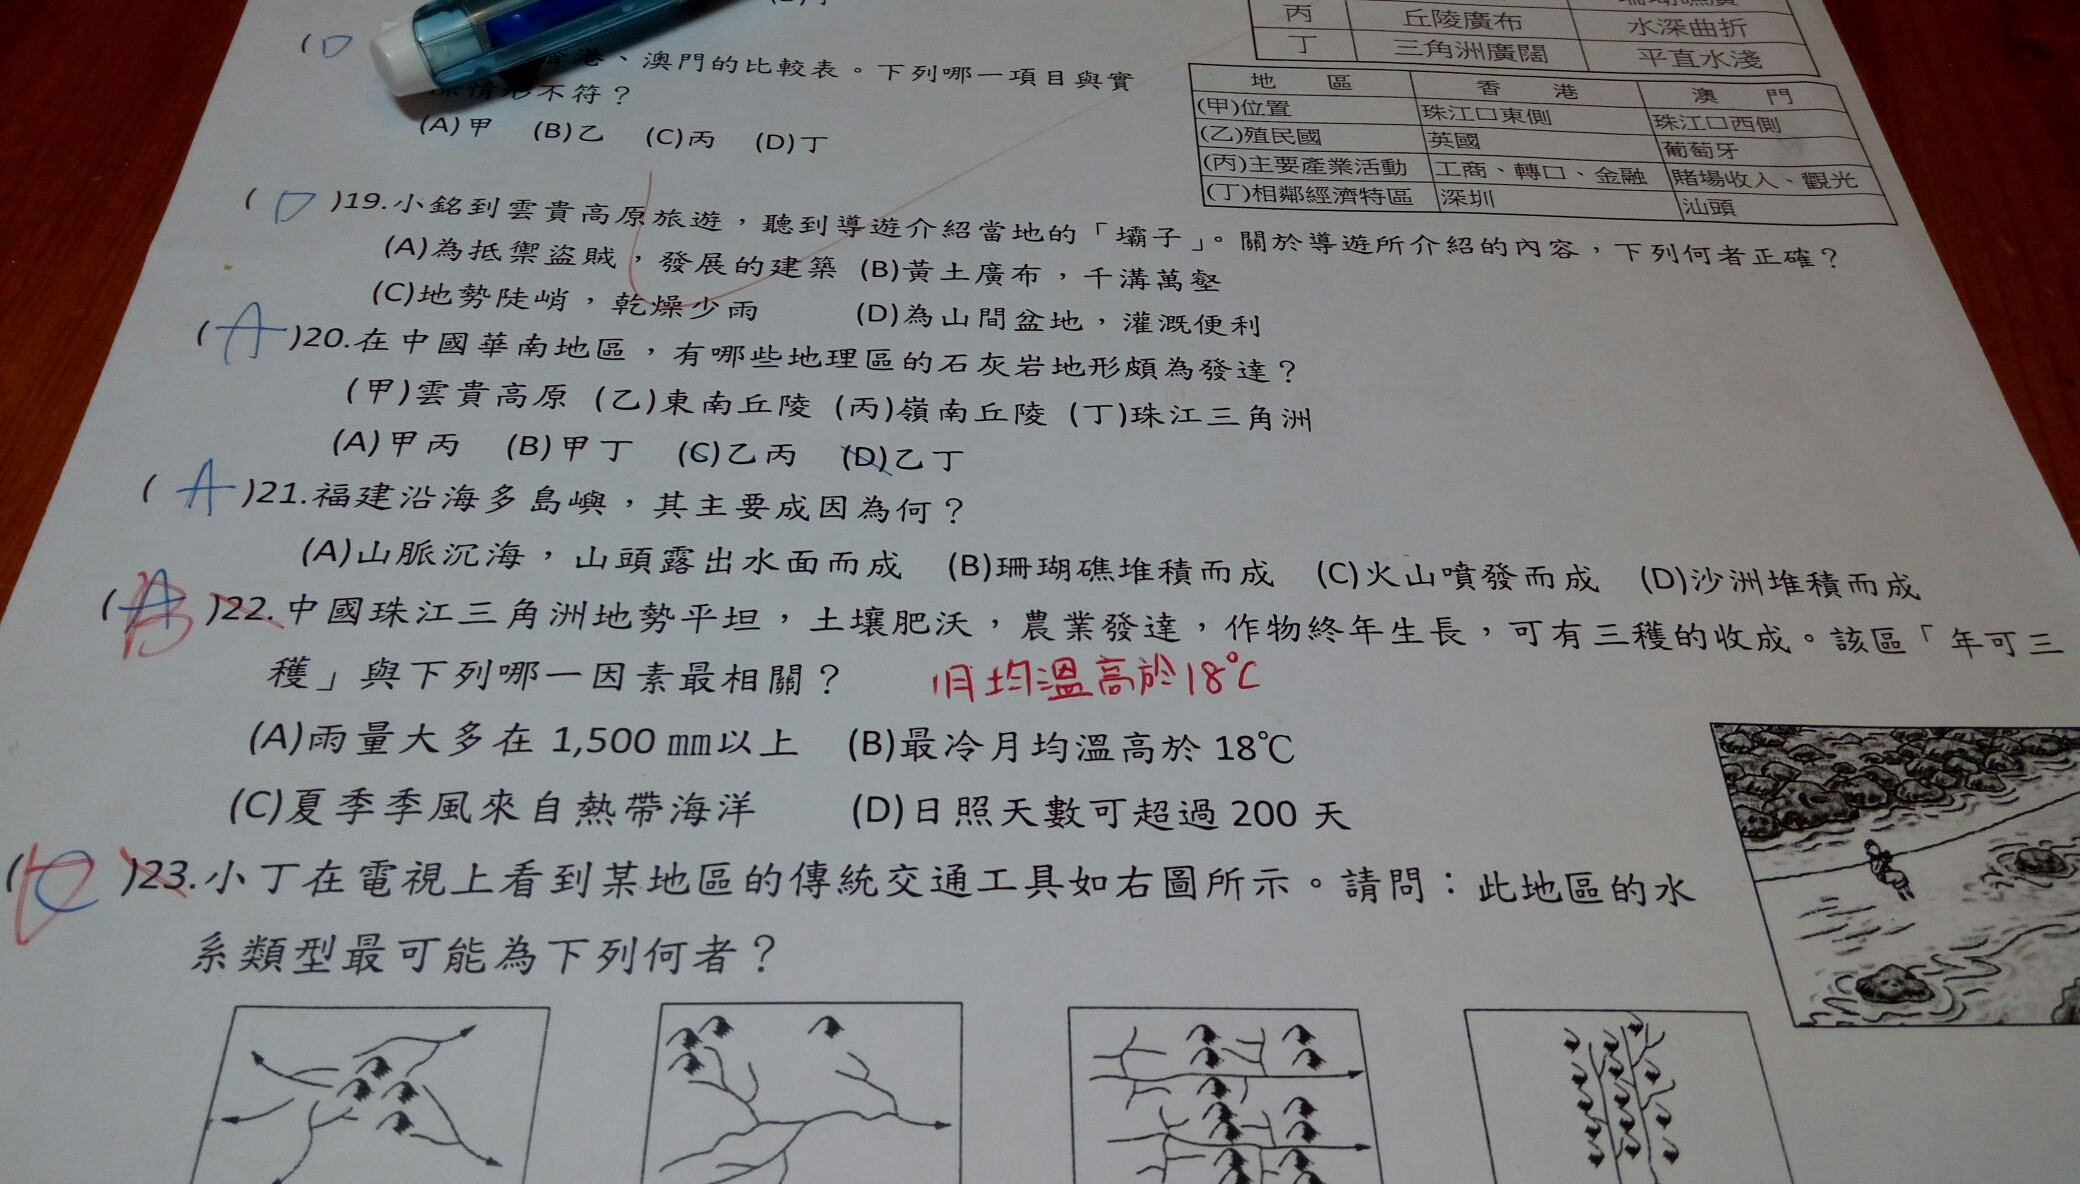 丙 丘陵廣布 水深曲折
丁 三角洲廣闊 平直水淺
( D
香港、澳門的比較表。下列哪一項目與實
際情形不符?
(A)甲 (B)乙 (C)丙 (D)丁
地 區 香 港 澳 門
(甲)位置 珠江口東側 珠江口西側
(乙)殖民國 英國 葡萄牙
(丙)主要產業活動 工商、轉口、金融 賭場收入、觀光
(丁)相鄰經濟特區 深圳 汕頭
( D )19.小銘到雲貴高原旅遊,聽到導遊介紹當地的「壩子」。關於導遊所介紹的內容,下列何者正確?
(A)為抵禦盜賊,發展的建築 (B)黃土廣布,千溝萬壑
(C)地勢陡峭,乾燥少雨 (D)為山間盆地,灌溉便利
( A )20.在中國華南地區,有哪些地理區的石灰岩地形頗為發達?
(甲)雲貴高原 (乙)東南丘陵 (丙)嶺南丘陵 (丁)珠江三角洲
(A)甲丙 (B)甲丁 (C)乙丙 (D)乙丁
( A )21.福建沿海多島嶼,其主要成因為何?
(A)山脈沉海,山頭露出水面而成 (B)珊瑚礁堆積而成 (C)火山噴發而成 (D)沙洲堆積而成
( A B )22.中國珠江三角洲地勢平坦,土壤肥沃,農業發達,作物終年生長,可有三穫的收成。該區「年可三
穫」與下列哪一因素最相關? 1月均溫高於18℃
(A)雨量大多在 1,500 ㎜以上 (B)最冷月均溫高於 18℃
(C)夏季季風來自熱帶海洋 (D)日照天數可超過 200 天
( C D )23.小丁在電視上看到某地區的傳統交通工具如右圖所示。請問:此地區的水
系類型最可能為下列何者?